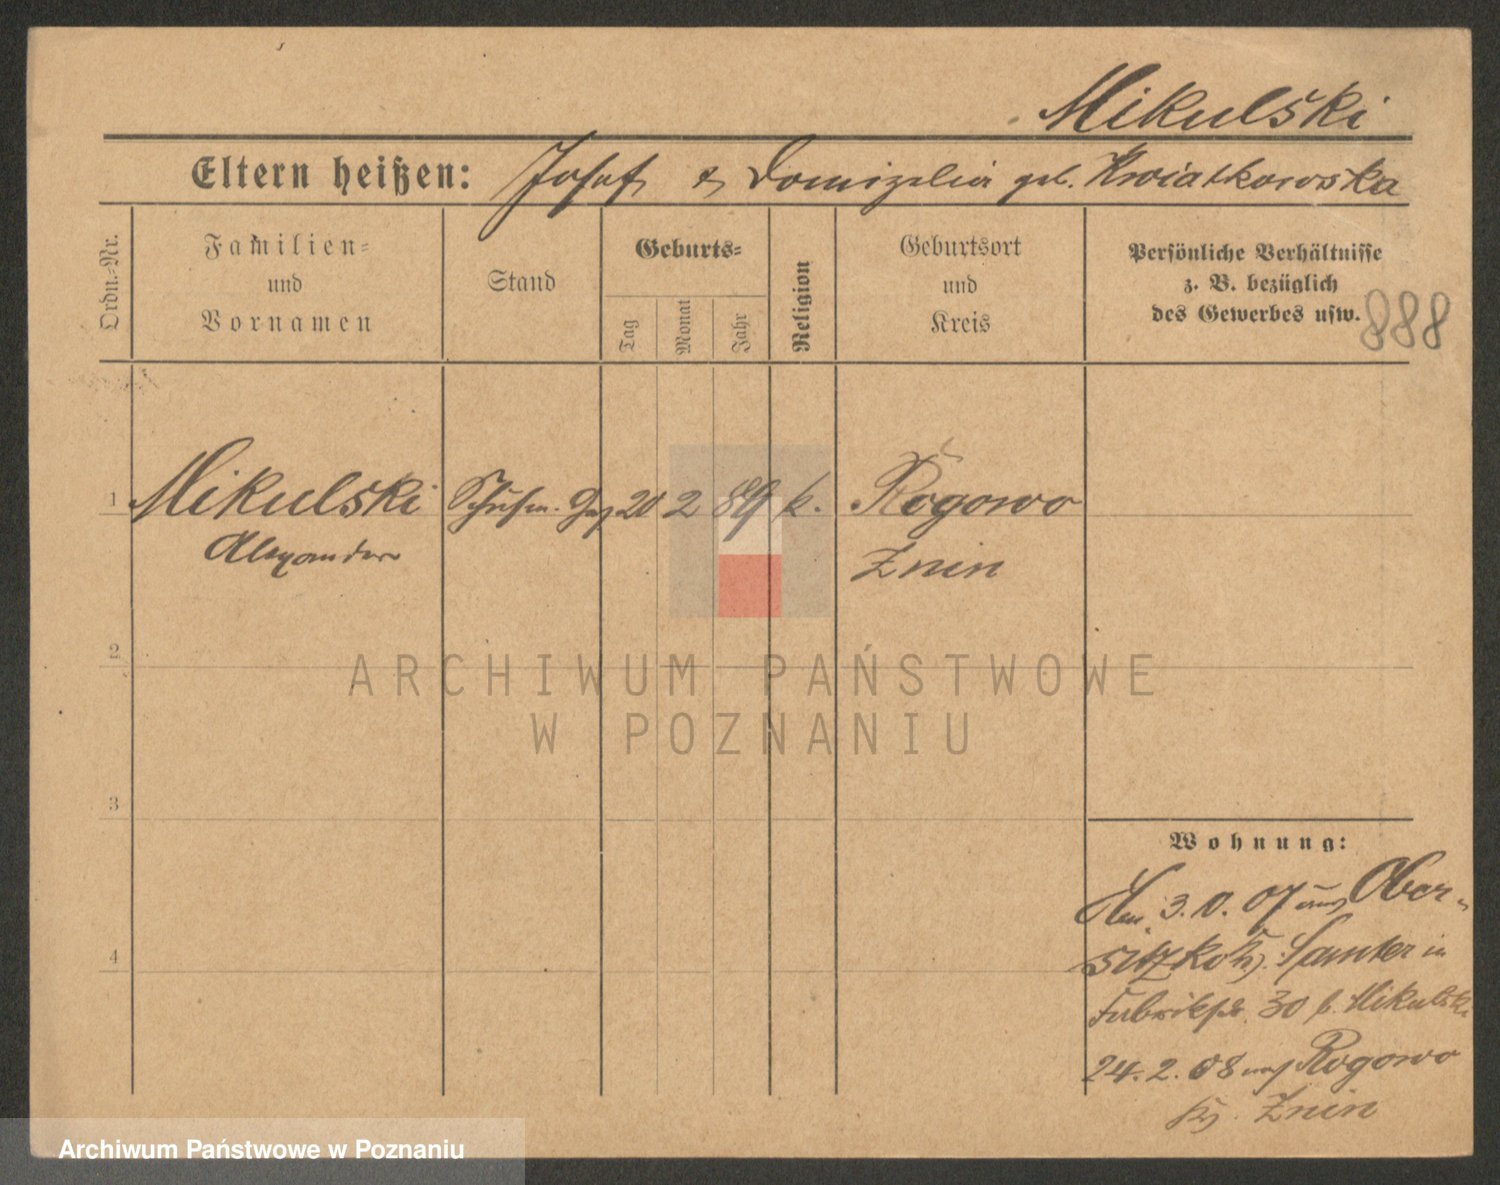 Mikulski
Eltern heißen: Josef & Domizelia geb. Kwiatkowska
Ordn.-Nr.
Familien-
und
Vornamen
Stand
Geburts-
Tag
Monat
Jahr
Religion
Geburtsort
und
Kreis
Persönliche Verhältnisse
z. B. bezüglich
des Gewerbes usw.
888
1 Mikulski 20 2 89 k. Rogowo
Alexander Znin
2
ARCHIWUM PAŃSTWOWE
W POZNANIU
3
Wohnung:
3. 07 aus Ober-
sitzko Samter in
Fabrikstr. 30 b. Mikulski
4
24. 2. 08 nach Rogowo
Znin
Archiwum Państwowe w Poznaniu